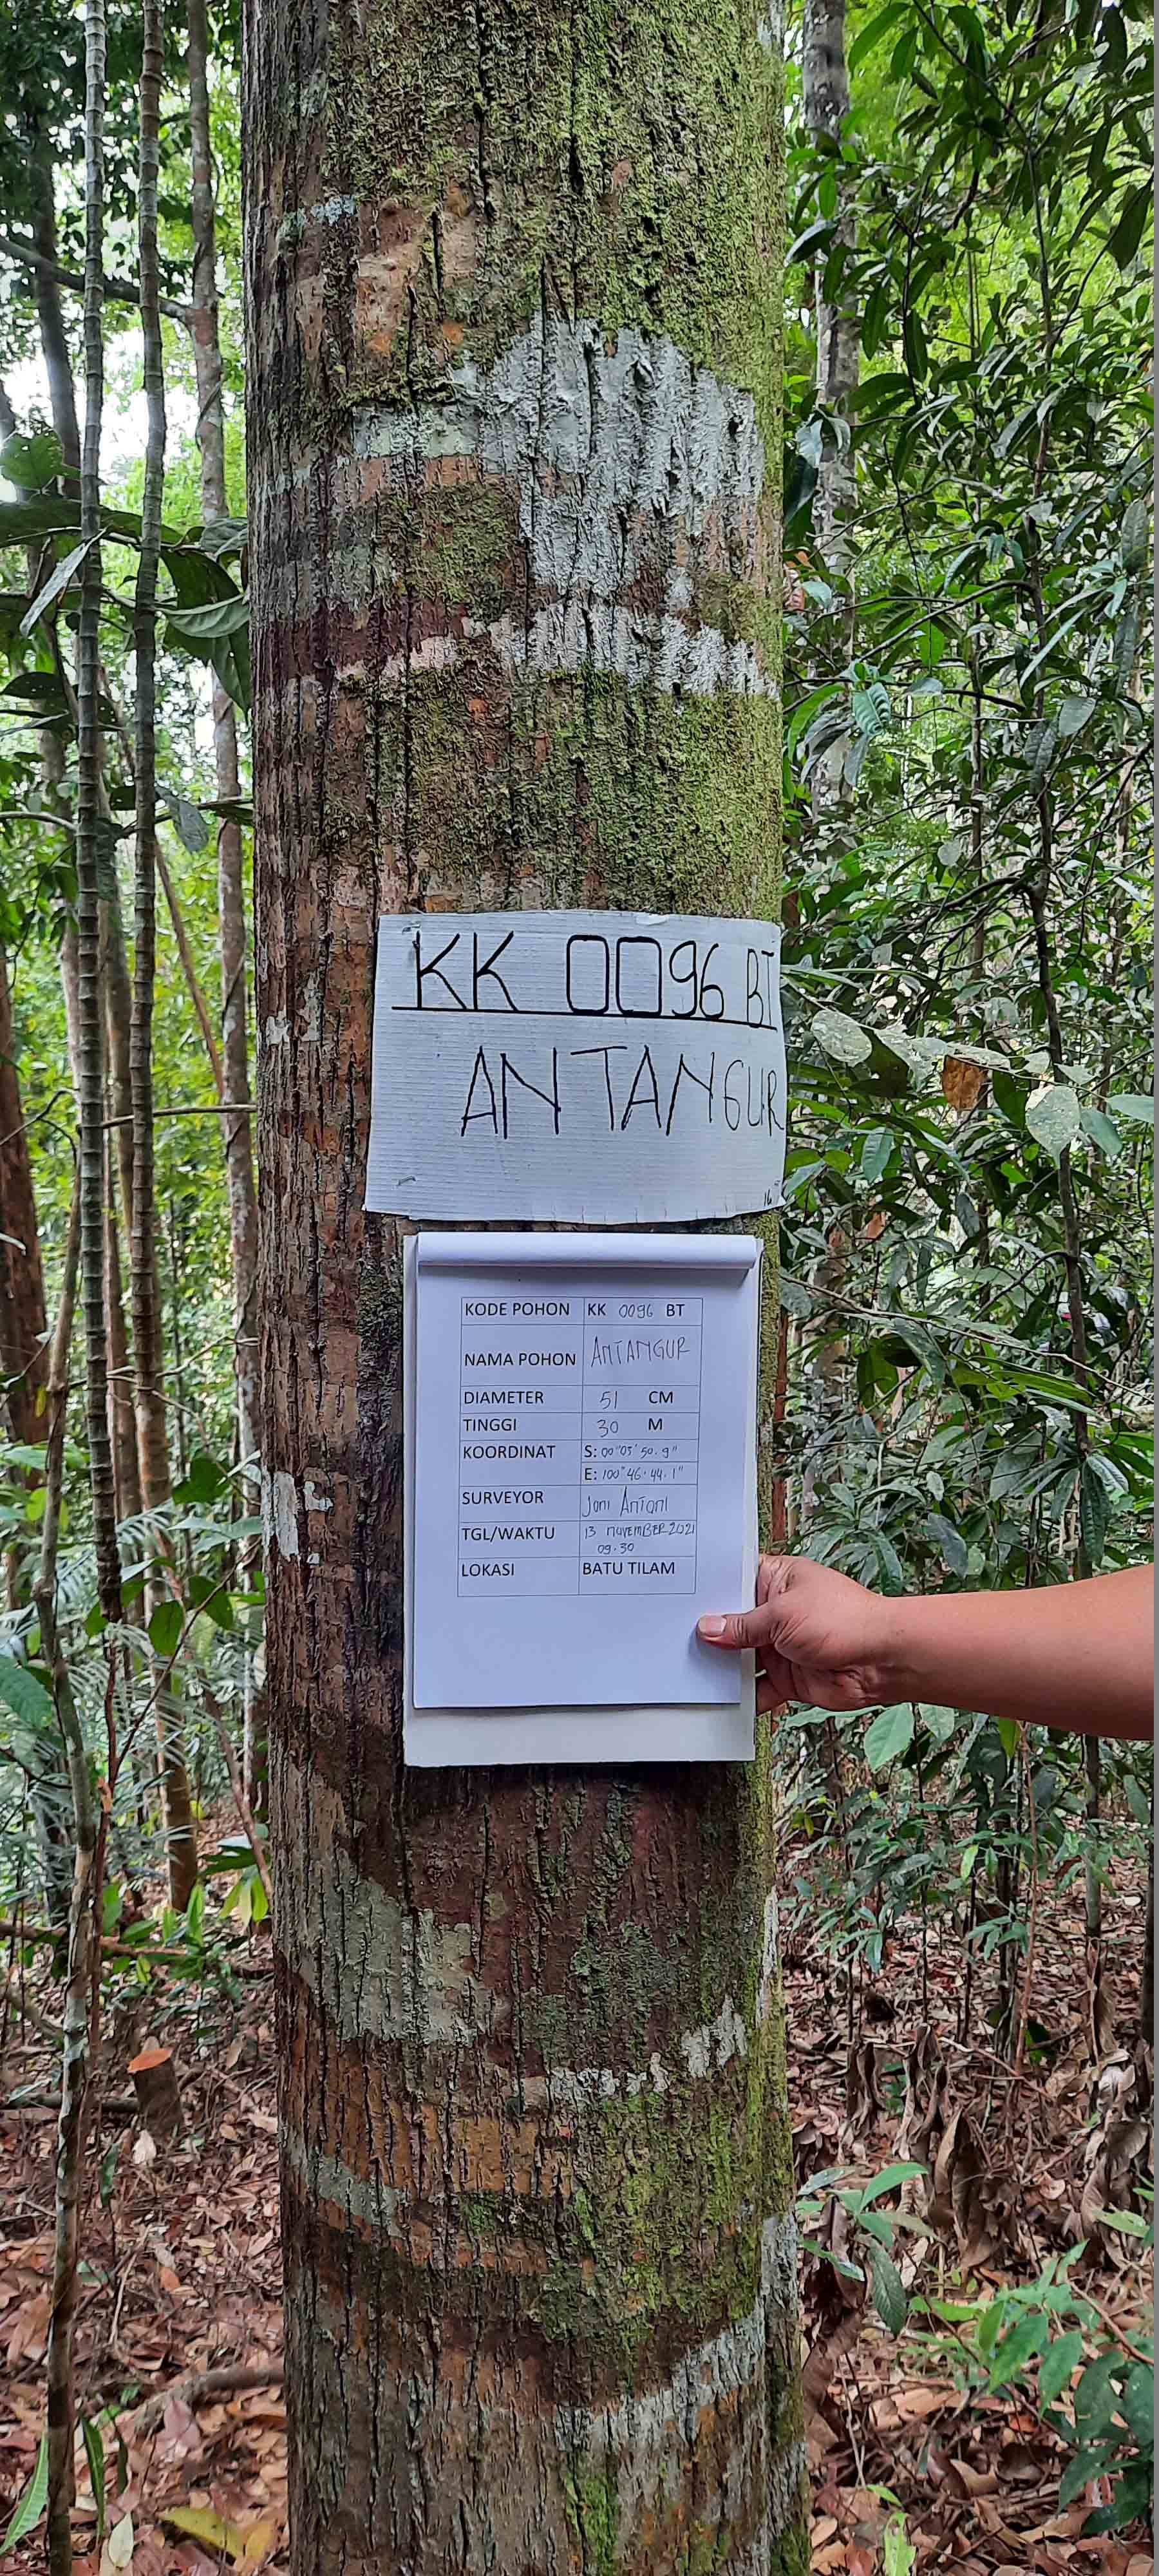 KK 0096 BT
ANTANGUR
16
KODE POHON KK 0096 BT
NAMA POHON ANTANGUR
DIAMETER 51 CM
TINGGI 30 M
KOORDINAT S: 00°05'50.9"
E: 100°46.44.1"
SURVEYOR Joni Antoni
TGL/WAKTU 13 NOVEMBER 2021
09.30
LOKASI BATU TILAM